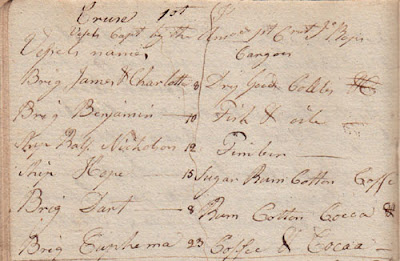 Cruse 1st
Vessels Capt by the
Vessels names Cargoes
Brig James & Charlotte 8 Dry Goods Cables &C
Brig Benjamin — 10 Fish & oile
Ship Ralp Nicholson 12 Timber —
Ship Hope 15 Sugar Rum Cotton Coffe
Brig Dart — 8 Rum Cotton Cocoa &
Brig Euphema 23 Coffee & Cocoa —